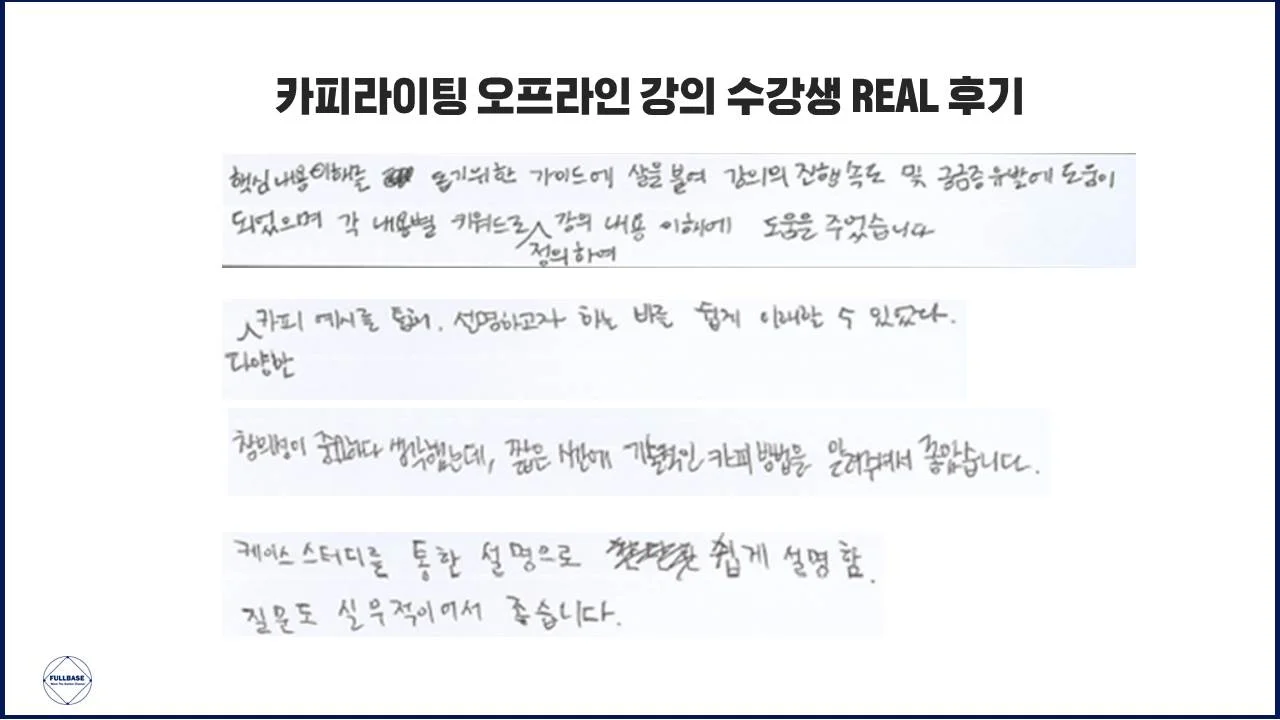 카피라이팅 오프라인 강의 수강생 REAL 후기
핵심 내용 이해를 돕기위한 가이드에 살을 붙여 강의의 진행 속도 및 궁금증 유발에 도움이
되었으며 각 내용별 키워드로 강의 내용 이해에 도움을 주었습니다
정의하여
카피 예시를 통해, 설명하고자 하는 바를 쉽게 이해할 수 있었다.
다양한
창의성이 중요하다 생각했는데, 짧은 시간에 기술적인 카피 방법을 알려주셔서 좋았습니다.
케이스 스터디를 통한 설명으로 쉽게 설명함.
질문도 실무적이어서 좋습니다.
FULLBASE